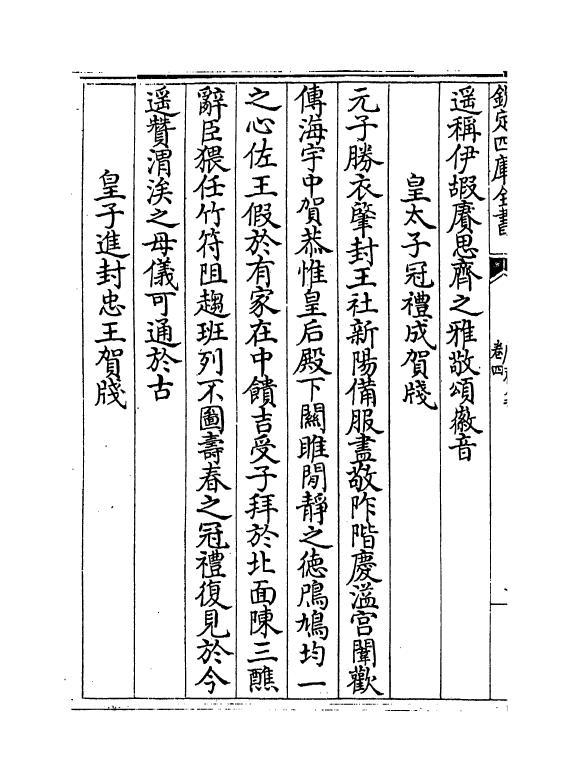 欽定四庫全書
卷四
遥稱伊嘏賡思齊之雅敬頌徽音
皇太子冠禮成賀牋
元子勝衣肇封王社新陽備服盡敬阼階慶溢宫闈歡
傳海宇中賀恭惟皇后殿下關雎閒靜之德鳲鳩均一
之心佐王假於有家在中饋吉受子拜於北面陳三醮
辭臣猥任竹符阻趨班列不圖壽春之冠禮復見於今
遥贊渭涘之母儀可通於古
皇子進封忠王賀牋